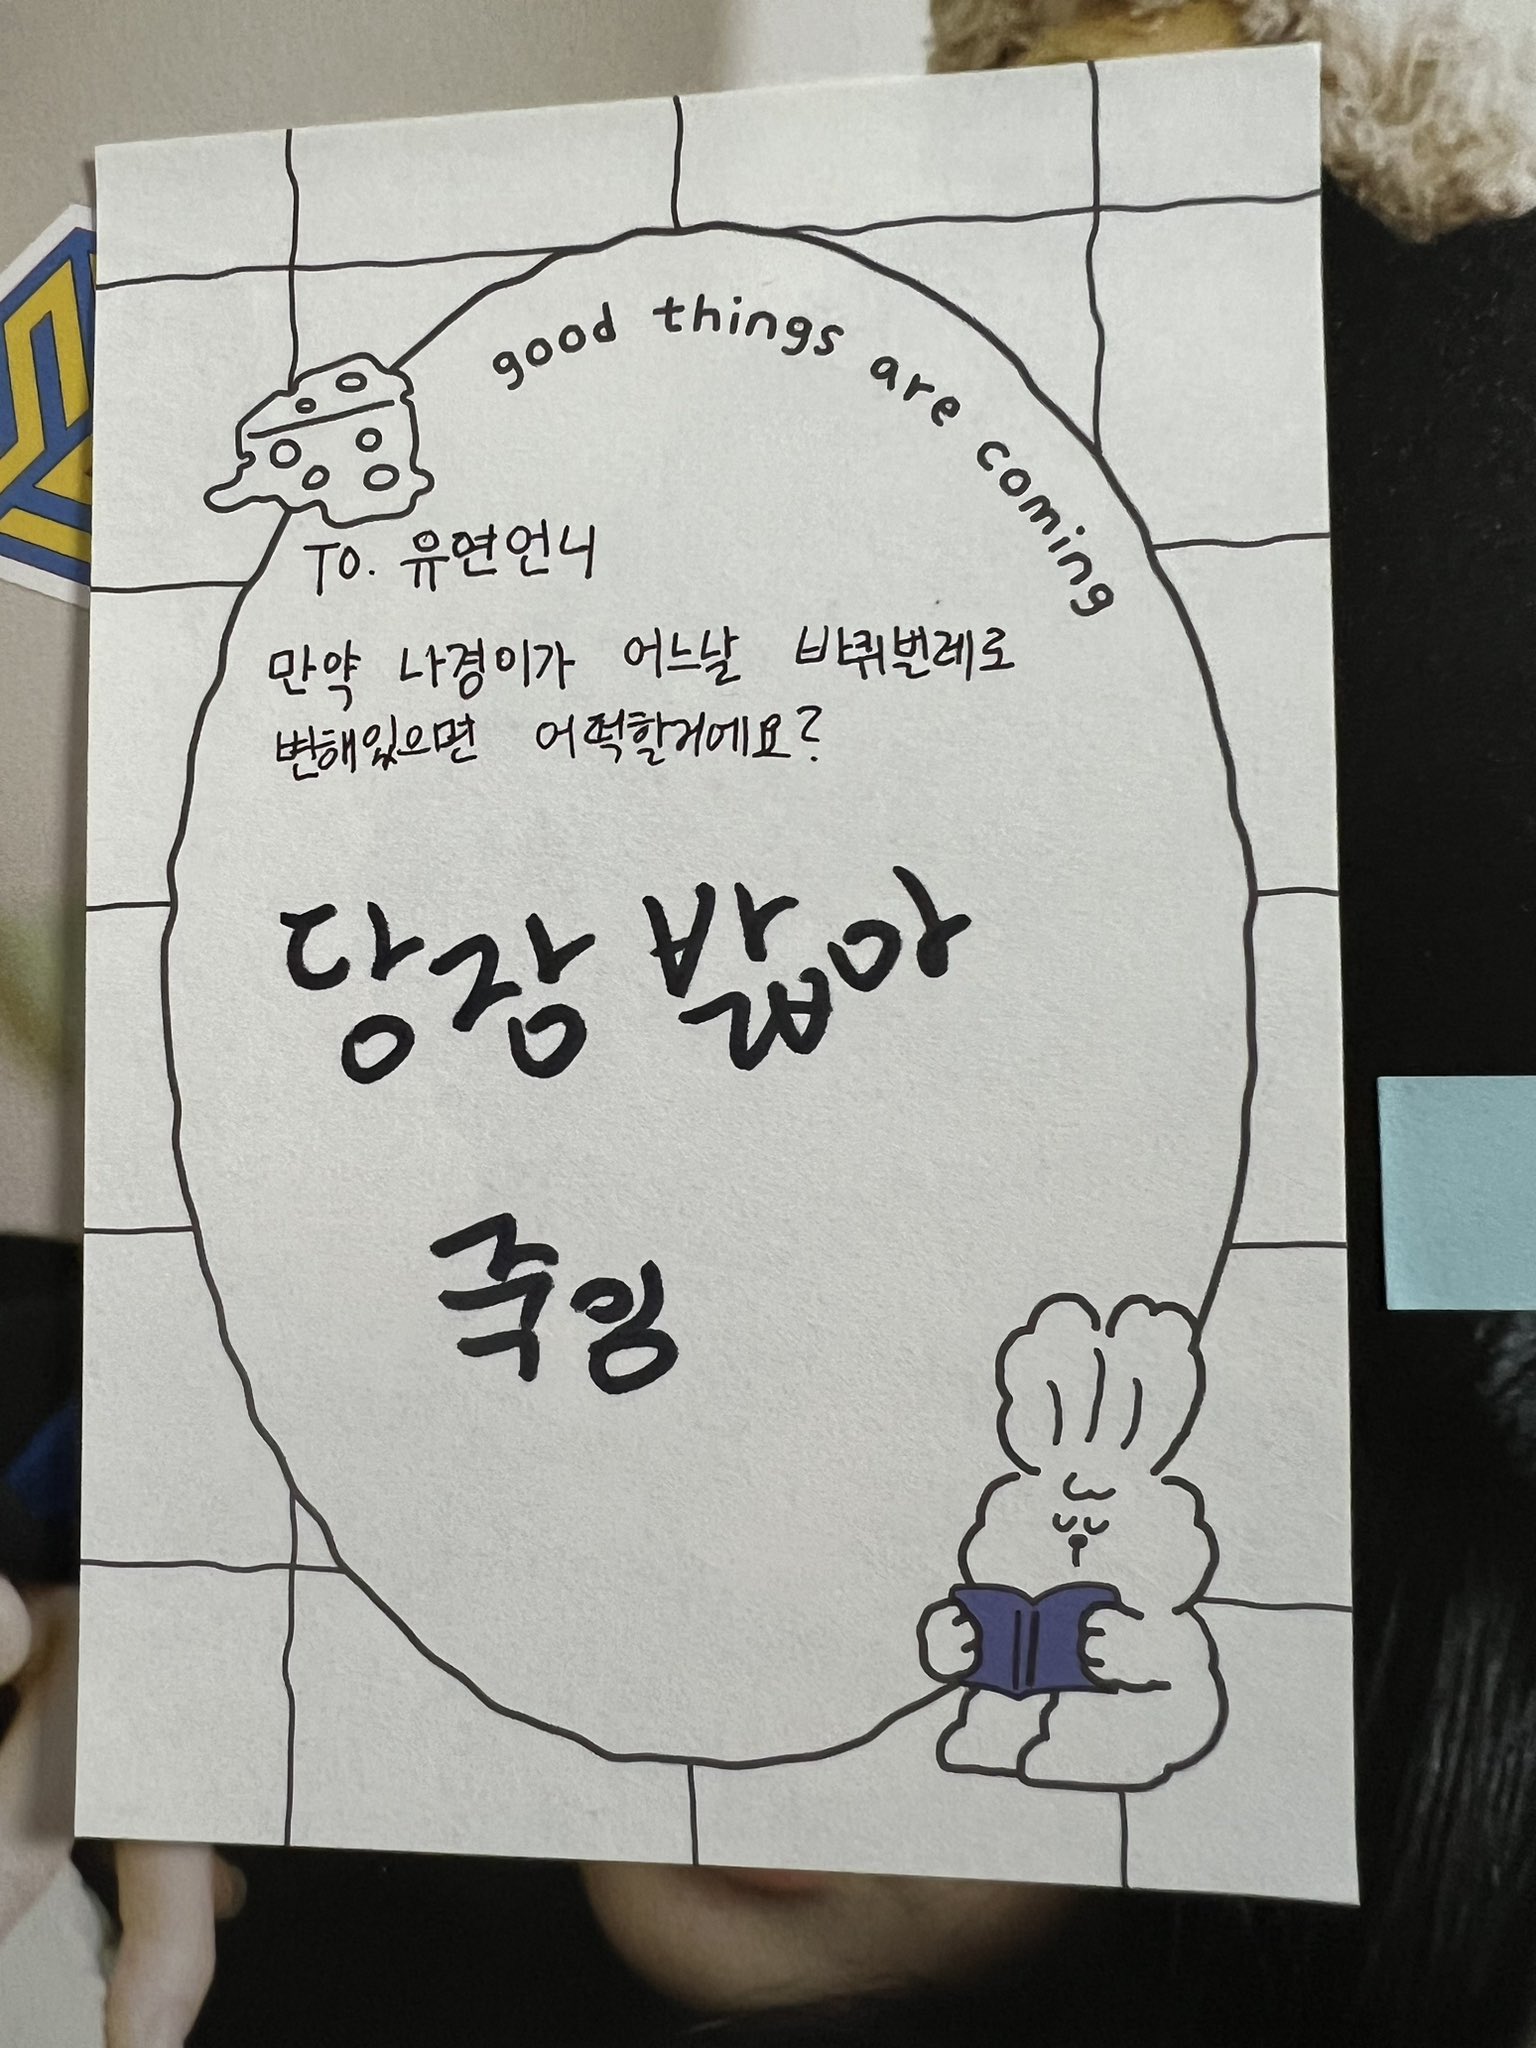 good things are coming
TO. 유연언니
만약 나경이가 어느날 바퀴벌레로
변해있으면 어떡할거에요?
당장 밟아
죽임